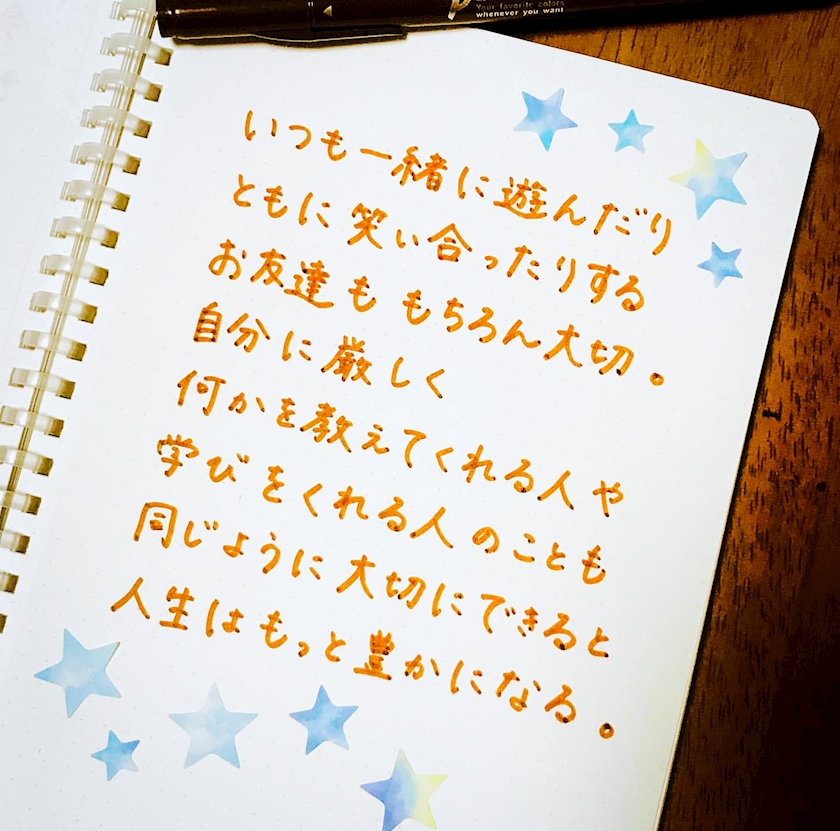 Your favorite colors
whenever you want
いつも一緒に遊んだり
ともに笑い合ったりする
お友達も もちろん大切。
自分に厳しく
何かを教えてくれる人や
学びをくれる人のことも
同じように大切にできると
人生はもっと豊かになる。